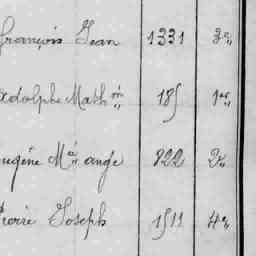 François Jean 1331 3"
Adolphe Math in 185 1"
Eugène M ange 922 2"
Pierre Joseph 1511 4"